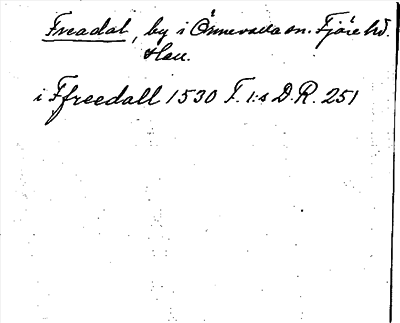 Freadal, by i Önnevada sn. Fjäre hd.
Hall.
i Ffreedall 1530 F. I:s D.R. 251